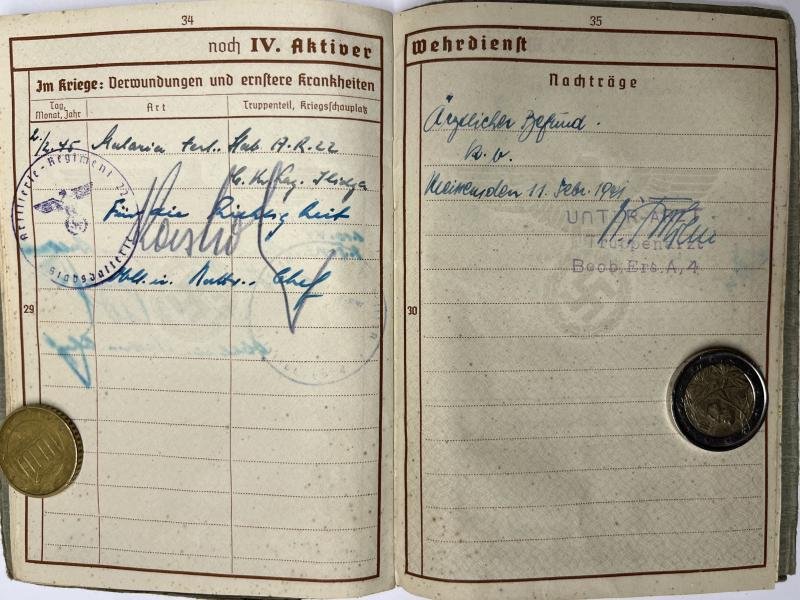 34
noch IV. Aktiver
Im Kriege: Verwundungen und ernstere Krankheiten
Tag, Monat, Jahr
Art
Truppenteil, Kriegsschauplatz
Malaria tert. Stab A.R. 22
Für die Richtigkeit
Oblt. u. Battr.- Chef
Artillerie-Regiment 22
Stabsbatterie
29
35
Wehrdienst
Nachträge
Ärztlicher Befund.
k. v.
11. Febr. 1941
UNTER-ARZT
Truppenarzt
Beob.Ers.A.4
30